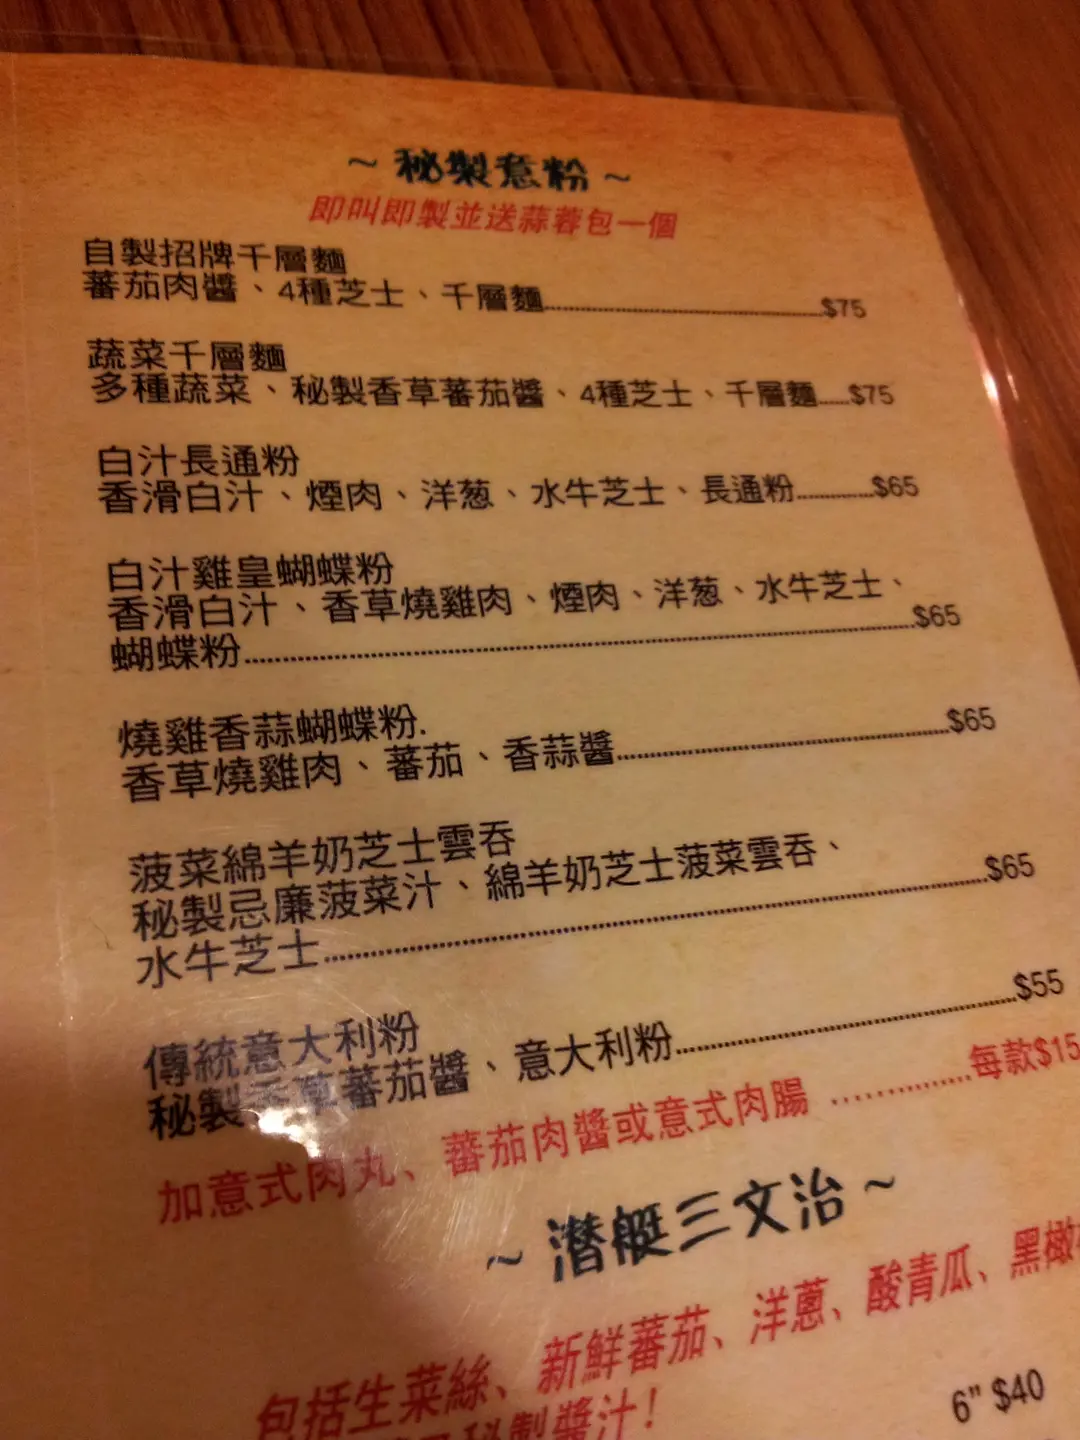 ~ 秘製意粉 ~
即叫即製並送蒜蓉包一個
自製招牌千層麵
蕃茄肉醬、4種芝士、千層麵..............................$75
蔬菜千層麵
多種蔬菜、秘製香草蕃茄醬、4種芝士、千層麵......$75
白汁長通粉
香滑白汁、煙肉、洋葱、水牛芝士、長通粉..............$65
白汁雞皇蝴蝶粉
香滑白汁、香草燒雞肉、煙肉、洋葱、水牛芝士、
蝴蝶粉..............................$65
燒雞香蒜蝴蝶粉.
香草燒雞肉、蕃茄、香蒜醬..............................$65
菠菜綿羊奶芝士雲吞
秘製忌廉菠菜汁、綿羊奶芝士菠菜雲吞、
水牛芝士..............................$65
傳統意大利粉
秘製香草蕃茄醬、意大利粉..............................$55
加意式肉丸、蕃茄肉醬或意式肉腸 ...............每款$15
~ 潛艇三文治 ~
包括生菜絲、新鮮蕃茄、洋蔥、酸青瓜、黑橄
秘製醬汁!
6" $40